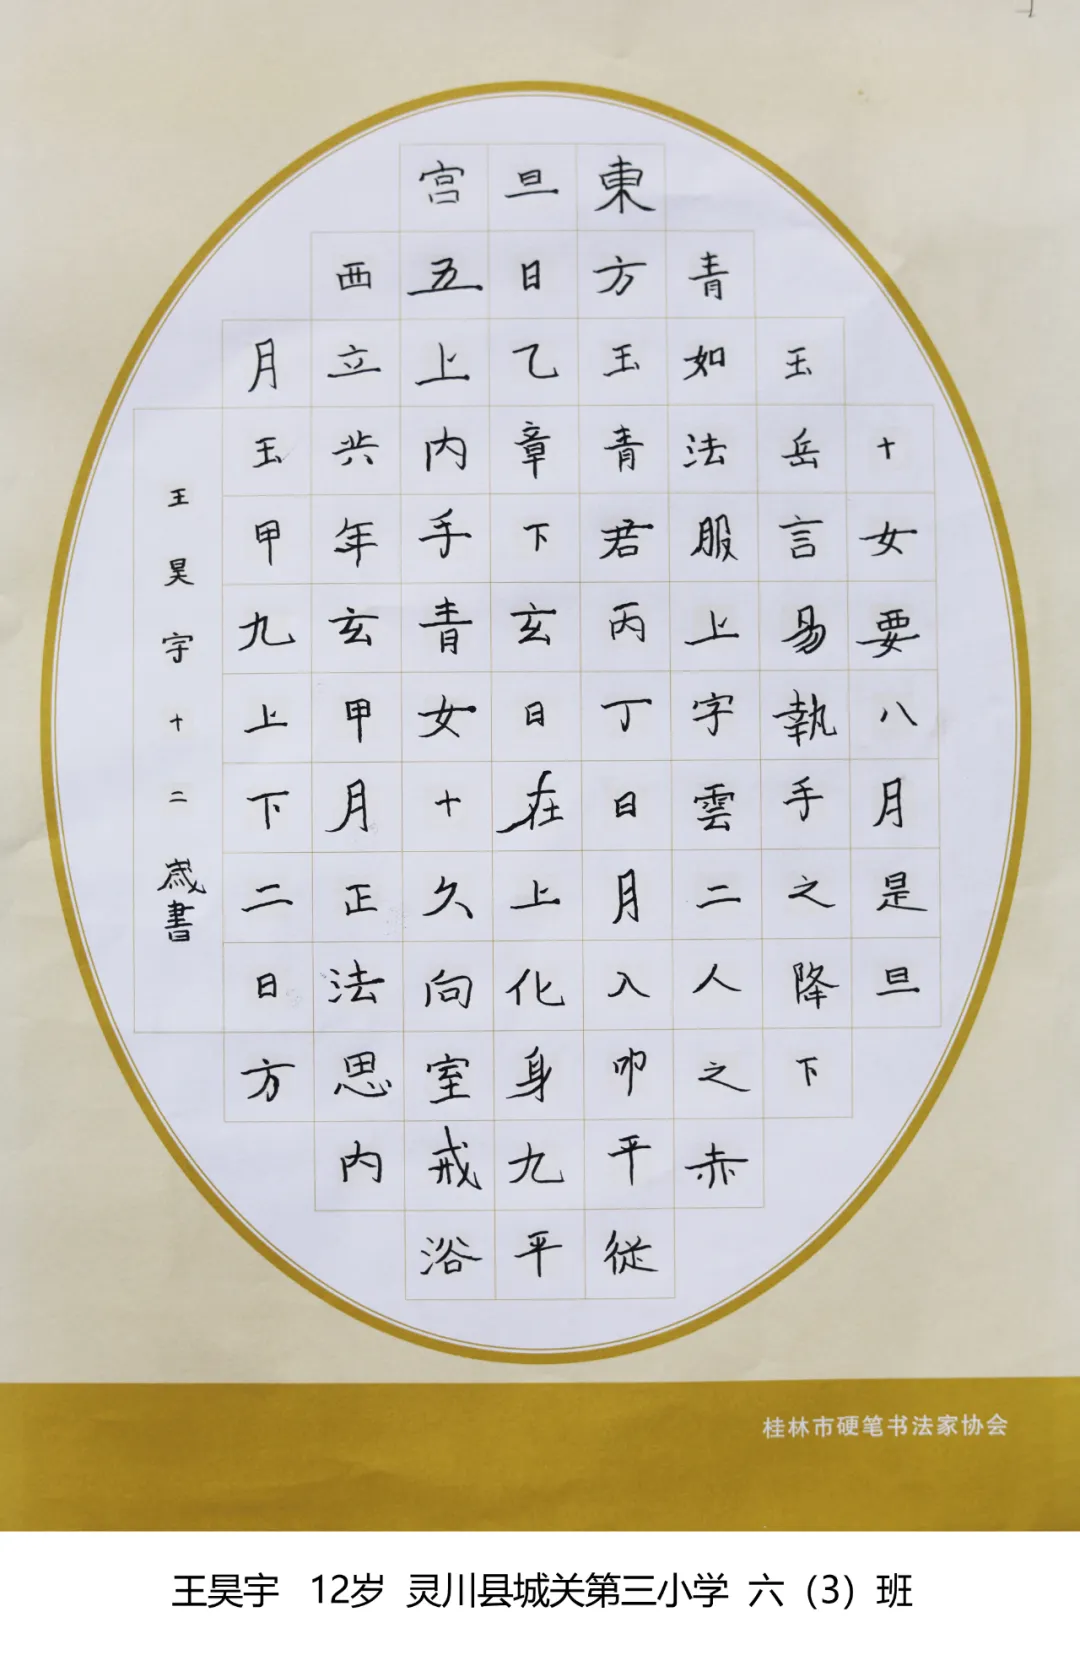 十女要八月是旦
玉岳言易執手之降下
青如法服上字雲二人之赤
東方玉青君丙丁日月入叩平從
旦日乙章下玄日在上化身九平
宮五上内手青女十久向室戒浴
西立共年玄甲月正法思内
月玉甲九上下二日方
王昊宇十二歲書
桂林市硬笔书法家协会
王昊宇 12岁 灵川县城关第三小学 六（3）班